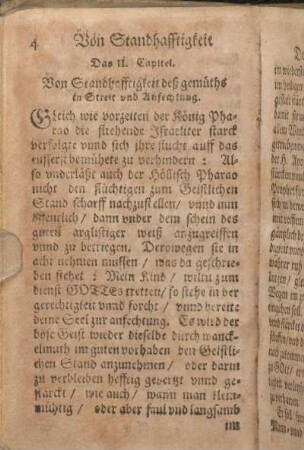 4 Von Standhafftigkeit
Das II. Capitel.
Von Standhafftigkeit deß gemüths
in Streit vnd Anfechtung.
Gleich wie vorzeiten der König Pha-
rao die fliehende Israeliter starck
verfolgte vnnd sich jhre flucht auff das
eusserst bemühete zu verhindern: Al-
so vnderläßt auch der Höllisch Pharao
nicht den flüchtigen zum Geistlichen
Stand scharff nachzustellen/ vnnd nun
öffentlich/ dann vnder dem schein des
guten arglistiger weiß anzugreiffen
vnnd zu betriegen. Derowegen sie in
acht nehmen müssen/ was da geschrie-
ben stehet: Mein Kind/ wiltu zum
dienst GOTTes tretten/ so stehe in der
gerechtigkeit vnnd forcht/ vnnd bereite
deine Seel zur anfechtung. Es wird der
böse Geist wieder dieselbe durch wanck-
elmuth im guten vorhaben den Geistli-
chen Stand anzunehmen/ oder darin
zu verbleiben hefftig gehetzt vnnd ge-
stärckt/ wie auch/ wann man klein-
mühtig/ oder aber faul vnd langsamb
im